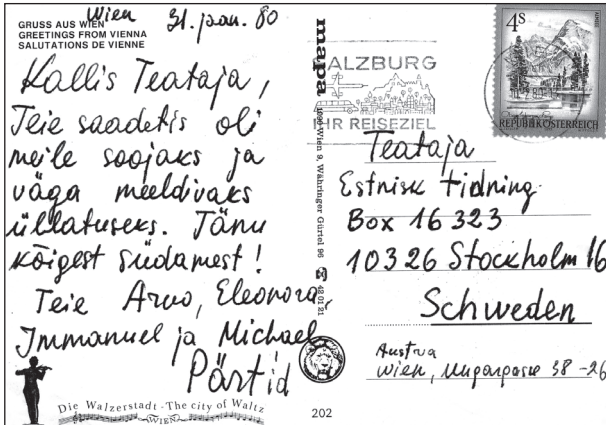 Wien 31. jan. 80
GRUSS AUS WIEN
GREETINGS FROM VIENNA
SALUTATIONS DE VIENNE
Kallis Teataja,
Teie saadetis oli
meile soojaks ja
väga meeldivaks
üllatuseks. Tänu
kõigest südamest!
Teie Arvo, Eleonora,
Immanuel ja Michael
Pärtid
Die Walzerstadt - The city of Waltz
WIEN
mapa
1090 Wien 9, Währinger Gürtel 96 ☎ 42 01 21
202
SALZBURG
IHR REISEZIEL
4S
REPUBLIK ÖSTERREICH
Teataja
Estnisk tidning
Box 16 323
10326 Stockholm 16
Schweden
Austria
Wien, Ungargasse 38-26